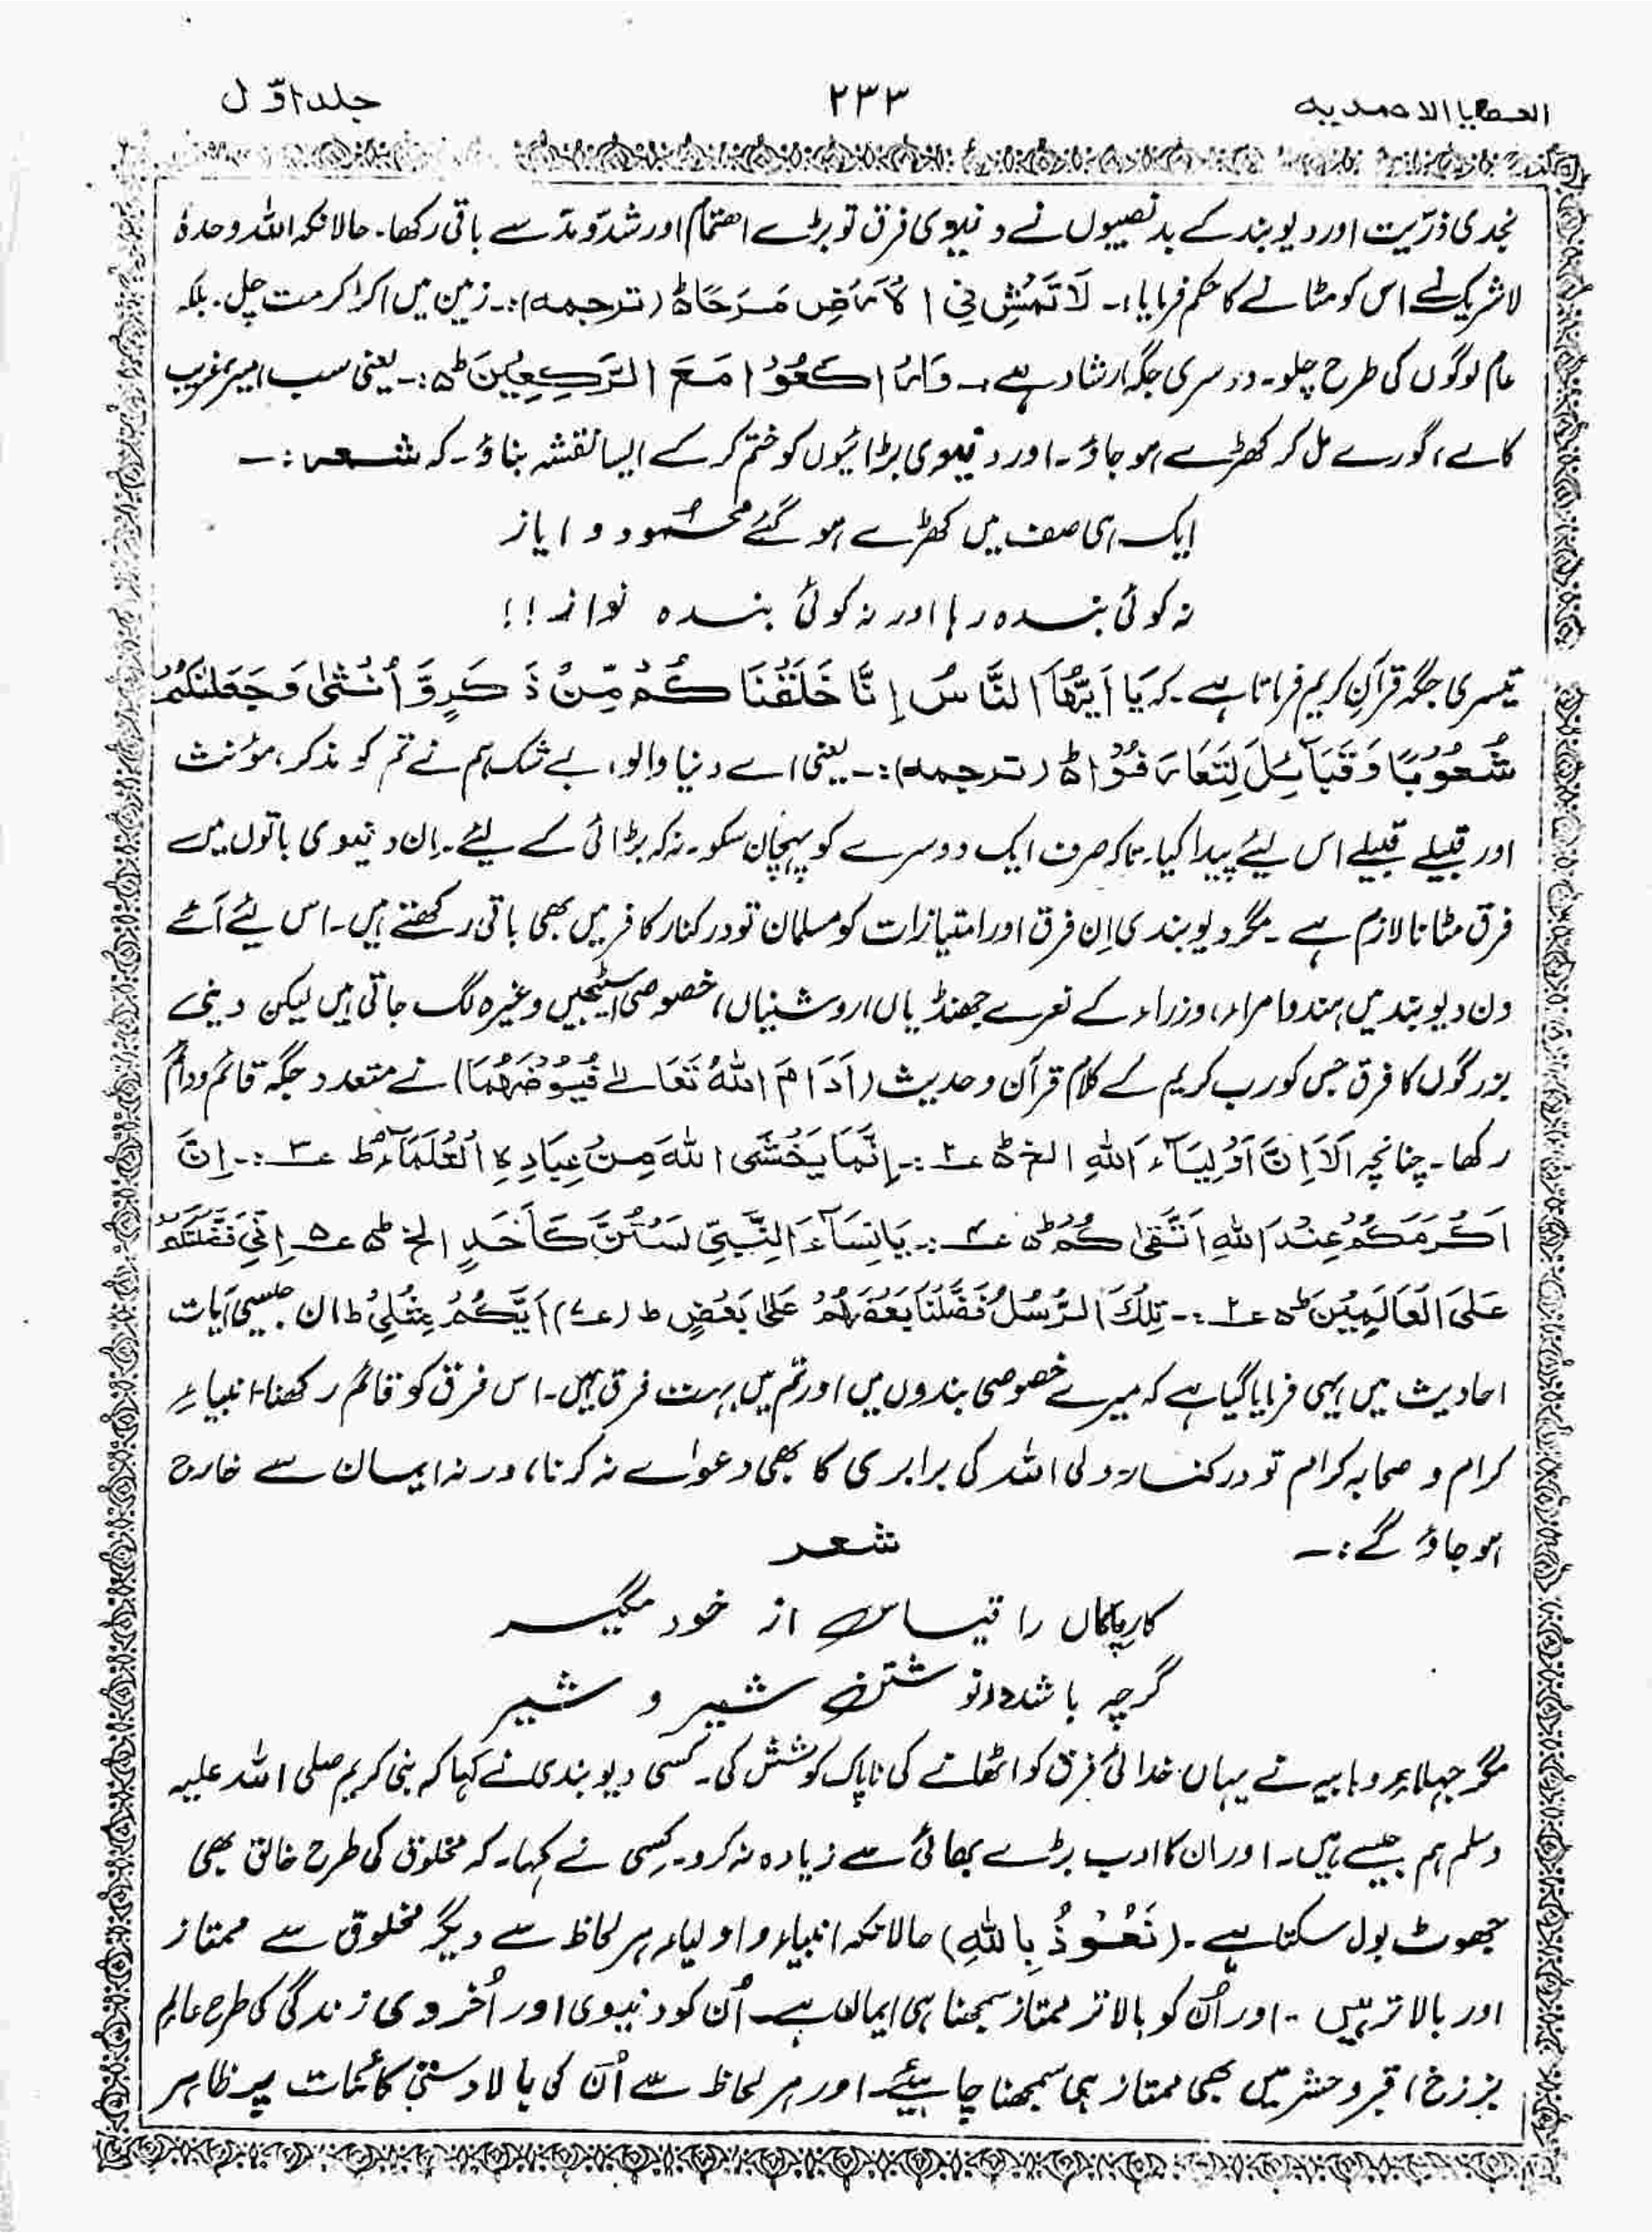 العطایا الاحمدیہ ۲۳۳ جلد اوّل
نجدی ذرّیت اور دیوبند کے بدنصیبوں نے دنیوی فرق تو بڑے اھتمام اور شدّومدّ سے باقی رکھا۔ حالانکہ اللہ وحدہٗ
لاشریک نے اس کو مٹانے کا حکم فرمایا:۔ لَا تَمْشِ فِی الْاَرْضِ مَرَحًا ہ (ترجمہ):۔ زمین میں اکڑ کر مت چل۔ بلکہ
عام لوگوں کی طرح چلو۔ دوسری جگہ ارشاد ہے:۔ وَارْكَعُوْا مَعَ الرّٰكِعِيْنَ ہ ط:۔ یعنی سب امیر غریب
کالے، گورے مل کر کھڑے ہو جاؤ۔ اور دنیوی بڑائیوں کو ختم کر کے ایسا نقشہ بناؤ۔ کہ شعر:۔
ایک ہی صف میں کھڑے ہو گئے محمُود و ایاز
نہ کوئی بندہ رہا اور نہ کوئی بندہ نواز!!
تیسری جگہ قرآنِ کریم فرماتا ہے۔ کہ يَا اَيُّهَا النَّاسُ اِنَّا خَلَقْنَا كُمْ مِّنْ ذَكَرٍ وَّ اُنْثٰى وَجَعَلْنٰكُمْ
شُعُوْبًا وَقَبَآئِلَ لِتَعَارَفُوْا ہ (ترجمہ):۔ یعنی اے دنیا والو، بے شک ہم نے تم کو مذکر، مؤنث
اور قبیلے قبیلے اس لیئے پیدا کیا۔ تاکہ صرف ایک دوسرے کو پہچان سکو۔ نہ کہ بڑائی کے لیئے۔ اِن دنیوی باتوں میں
فرق مٹانا لازم ہے۔ مگر دیوبندی اِن فرق اور امتیازات کو مسلمان تو درکنار کافر میں بھی باقی رکھتے ہیں۔ اس لیئے آئے
دن دیوبند میں ہندو امراء، وزراء کے نعرے جھنڈیاں، روشنیاں، خصوصی اسٹیجیں وغیرہ لگ جاتی ہیں لیکن دینی
بزرگوں کا فرق جس کو رب کریم کے کلام قرآن و حدیث (اَدَامَ اللهُ تَعَالٰے فُيُوْضَهُمَا) نے متعدد جگہ قائم ودائم
رکھا۔ چنانچہ اَلَا اِنَّ اَوْلِيَآءَ اللهِ الخ ہ ۲؎:۔ اِنَّمَا يَخْشَى اللهَ مِنْ عِبَادِهِ الْعُلَمَآءُ ط ۳؎:۔ اِنَّ
اَكْرَمَكُمْ عِنْدَ اللهِ اَتْقٰى كُمْ ہ ط ۴؎:۔ يَانِسَآءَ النَّبِيِّ لَسْتُنَّ كَاَحَدٍ الخ ہ ط ۵؎ اِنِّي فَضَّلْتُكُمْ
عَلَى الْعَالَمِيْنَ ہ ط ۶؎:۔ تِلْكَ الرُّسُلُ فَضَّلْنَا بَعْضَهُمْ عَلٰى بَعْضٍ ط (۷؎) اَيُّكُمْ مِثْلِيْ ط ان جیسی آیات
احادیث میں یہی فرمایا گیا ہے کہ میرے خصوصی بندوں میں اور تم میں بہت فرق ہیں۔ اس فرق کو قائم رکھنا۔ انبیاءِ
کرام و صحابہ کرام تو درکنار ولی اللہ کی برابری کا بھی دعوٰے نہ کرنا، ورنہ ایمان سے خارج
ہو جاؤ گے:۔ شعر
کارِ پاکاں را قیاس از خود مگیر
گرچہ باشد در نوشتن شیر و شیر
مگر جہلاء وہابیہ نے یہاں خدائی فرق کو اٹھانے کی ناپاک کوشش کی۔ کسی دیوبندی نے کہا کہ نبی کریم صلی اللہ علیہ
وسلم ہم جیسے ہیں۔ اور ان کا ادب بڑے بھائی سے زیادہ نہ کرو۔ کِسی نے کہا۔ کہ مخلوق کی طرح خالق بھی
جھوٹ بول سکتا ہے۔ (نَعُوْذُ بِاللهِ) حالانکہ انبیاء و اولیاء ہر لحاظ سے دیگر مخلوق سے ممتاز
اور بالاتر ہیں۔ اور اُن کو بالاتر ممتاز سمجھنا ہی ایمان ہے۔ اُن کو دنیوی اور اُخروی زندگی کی طرح عالمِ
برزخ، قبر و حشر میں بھی ممتاز ہی سمجھنا چاہیئے۔ اور ہر لحاظ سے اُن کی بالا دستی کائنات پر ظاہر